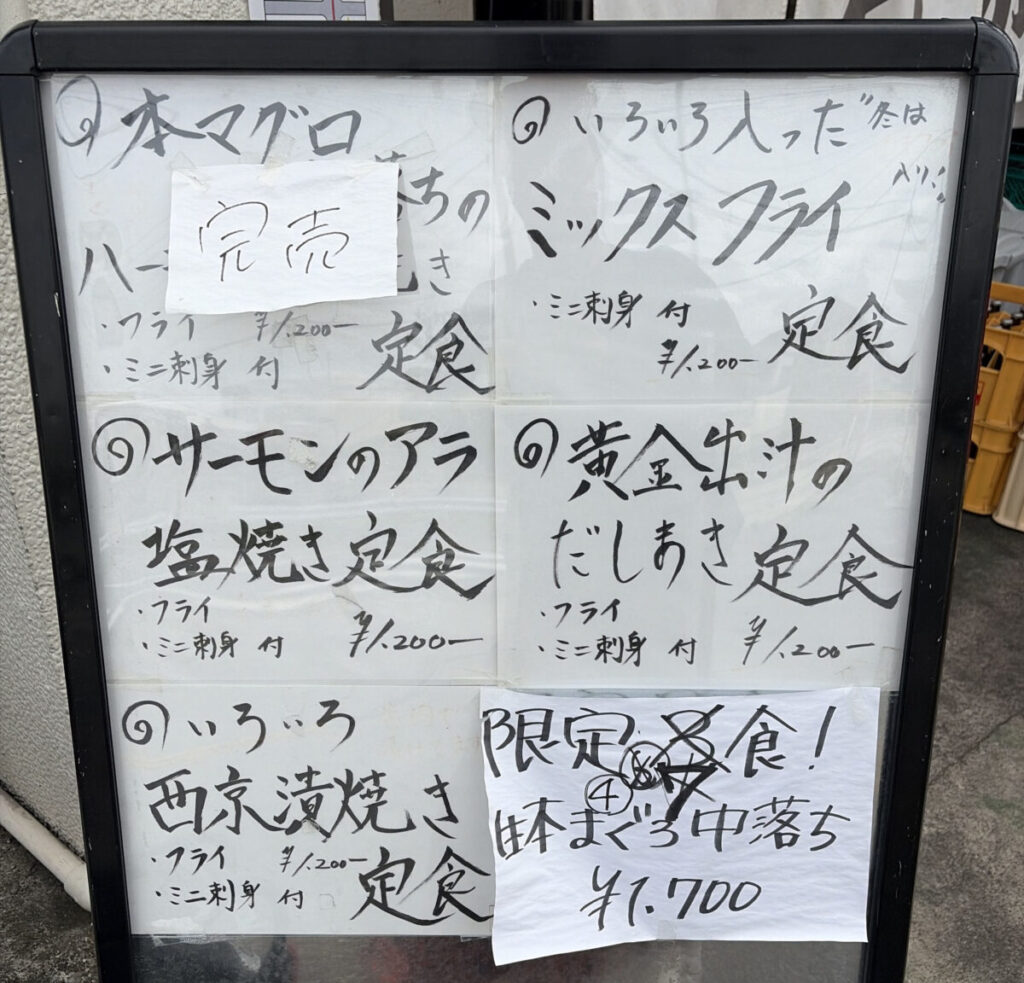 本マグロ
落ちの
完売
ハー
き
・フライ ¥1.200ー
・ミニ刺身 付 定食
いろいろ入った "冬は
ミックスフライ
・ミニ刺身 付
¥1.200ー 定食
サーモンのアラ
塩焼き定食
・フライ
・ミニ刺身 付 ¥1.200ー
黄金出汁の
だしまき定食
・フライ
・ミニ刺身 付 ¥1.200ー
いろいろ
西京漬焼き
・フライ ¥1.200ー
・ミニ刺身 付 定食
限定 食!
④
生本まぐろ中落ち
¥1.700